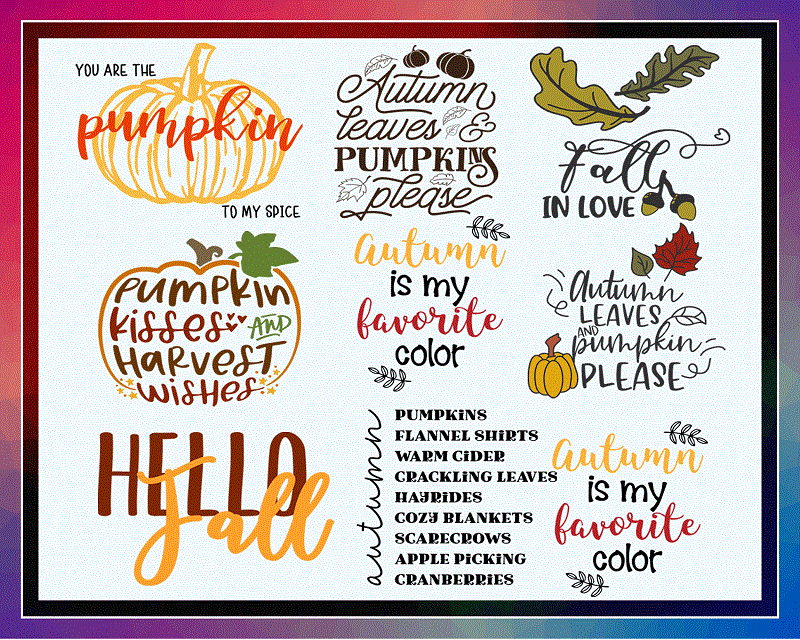 YOU ARE THE
pumpkin
TO MY SPICE
Autumn
leaves &
PUMPKINS
please
fall
IN LOVE
PUMPKIN
KISSES AND
HARVEST
WISHES
Autumn
is my
favorite
color
Autumn
LEAVES
AND
pumpkin
PLEASE
HELLO
Fall
autumn
PUMPKINS
FLANNEL SHIRTS
WARM CIDER
CRACKLING LEAVES
HAYRIDES
COZY BLANKETS
SCARECROWS
APPLE PICKING
CRANBERRIES
Autumn
is my
favorite
color